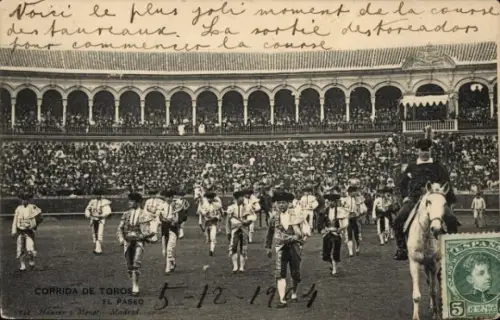 Voici le plus joli moment de la course
des taureaux. La sortie des toreadors
pour commencer la course
CORRIDA DE TOROS
EL PASEO
Hauser y Menet. - Madrid
5-12-1904
ESPAÑA
5